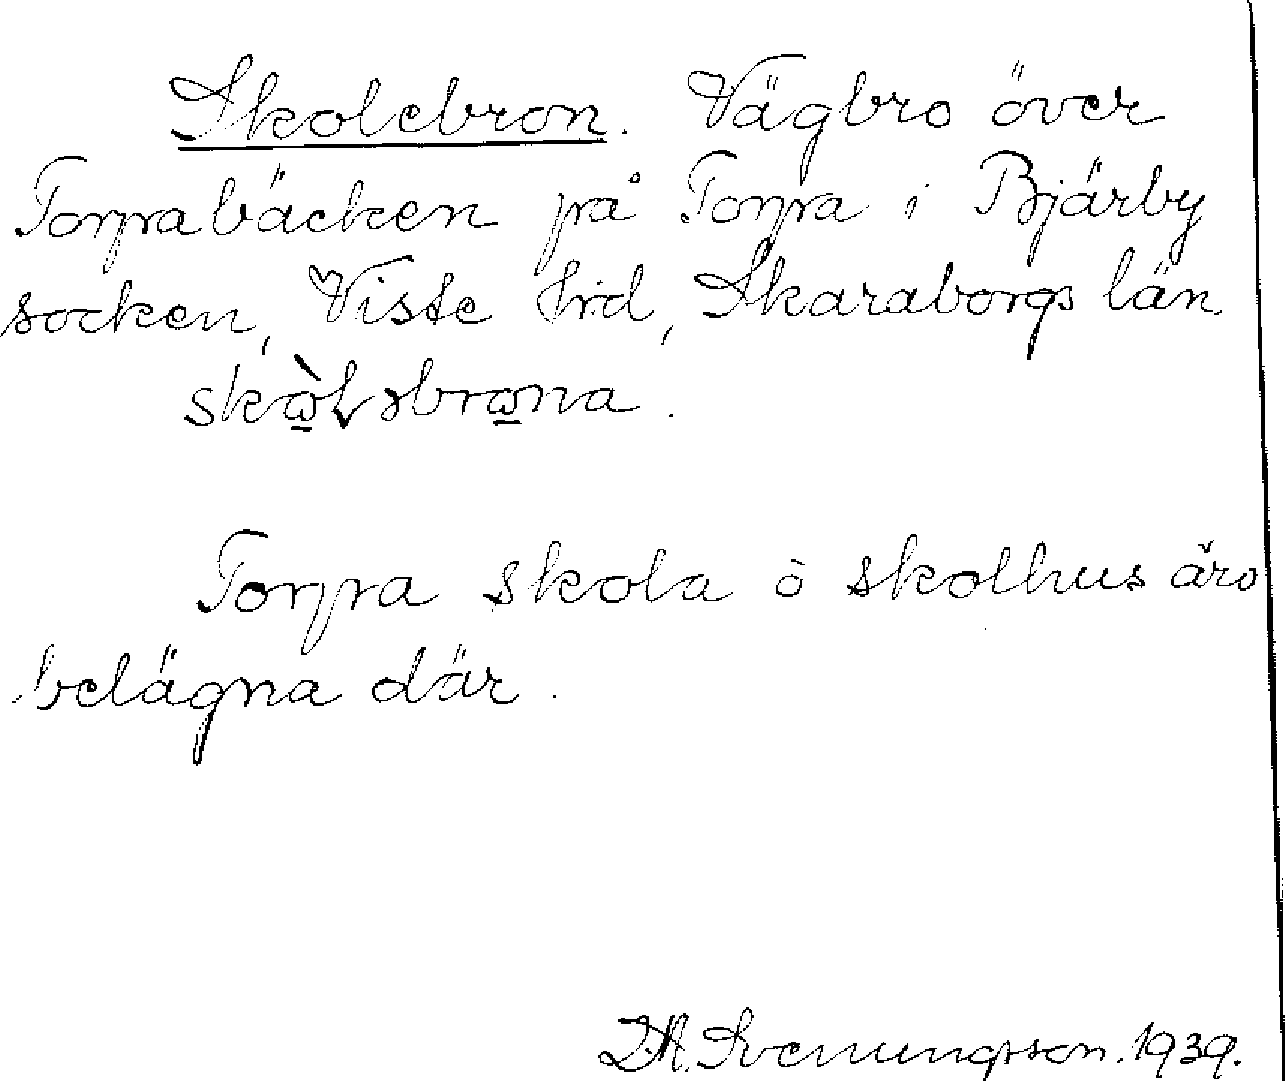 Skolebron. Vägbro över
Torpabäcken på Torpa i Bjärby
socken, Viste hrd, Skaraborgs län.
Torpa skola o skolhus äro
belägna där.
D.A. Svenungsson. 1939.